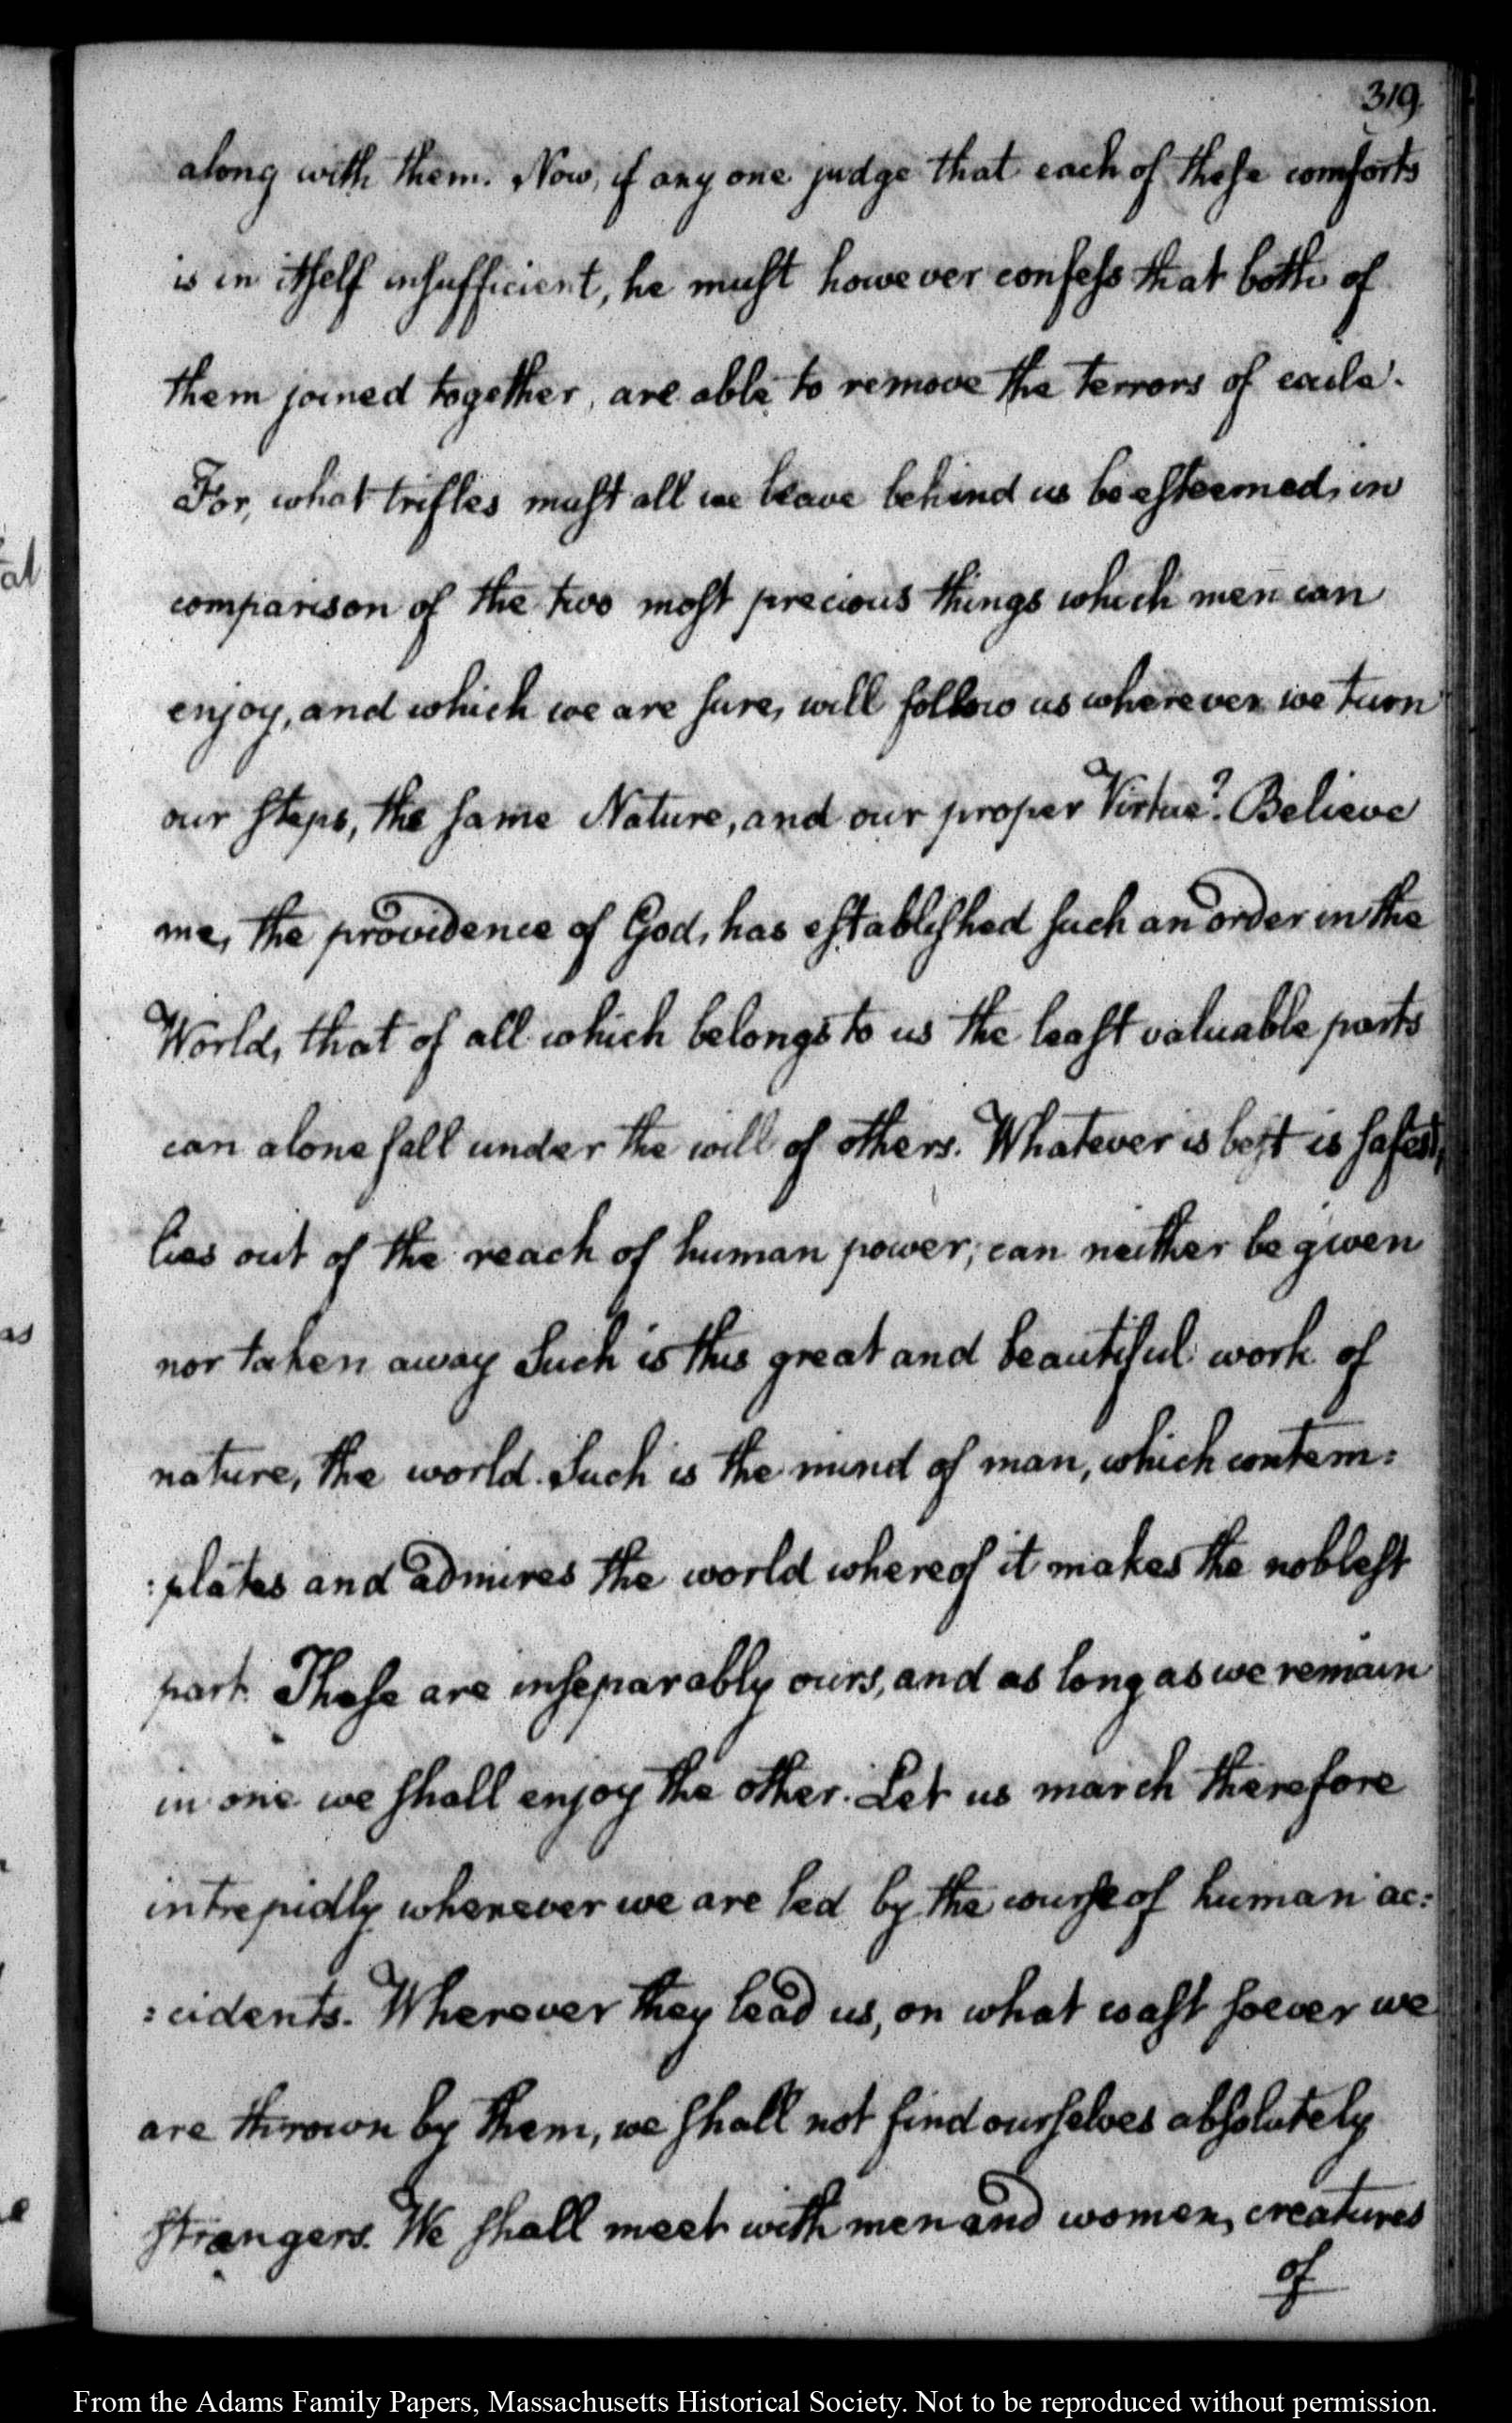 319
along with them. Now, if any one judge that each of these comforts
is in itself insufficient, he must however confess that both of
them joined together, are able to remove the terrors of exile.
For, what trifles must all we leave behind us be esteemed, in
comparison of the two most precious things which men can
enjoy, and which we are sure, will follow us wherever we turn
our steps, the same Nature, and our proper Virtue? Believe
me, the providence of God, has established such an order in the
World, that of all which belongs to us the least valuable parts
can alone fall under the will of others. Whatever is best is safest,
lies out of the reach of human power; can neither be given
nor taken away Such is this great and beautiful work of
nature, the world. Such is the mind of man, which contem:
:plates and admires the world whereof it makes the noblest
part. These are inseparably ours, and as long as we remain
in one we shall enjoy the other. Let us march therefore
intrepidly wherever we are led by the course of human ac:
:cidents. Wherever they lead us, on what coast soever we
are thrown by them, we shall not find ourselves absolutely
strangers. We shall meet with men and women, creatures
of
tal
as
e
From the Adams Family Papers, Massachusetts Historical Society. Not to be reproduced without permission.